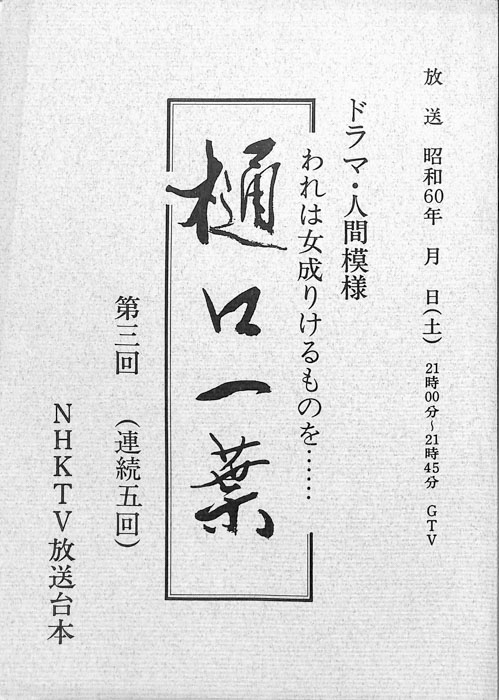 放送 昭和60年 月 日(土) 21時00分~21時45分 GTV
ドラマ・人間模様
われは女成りけるものを……
樋口一葉
第三回 (連続五回)
NHKTV放送台本